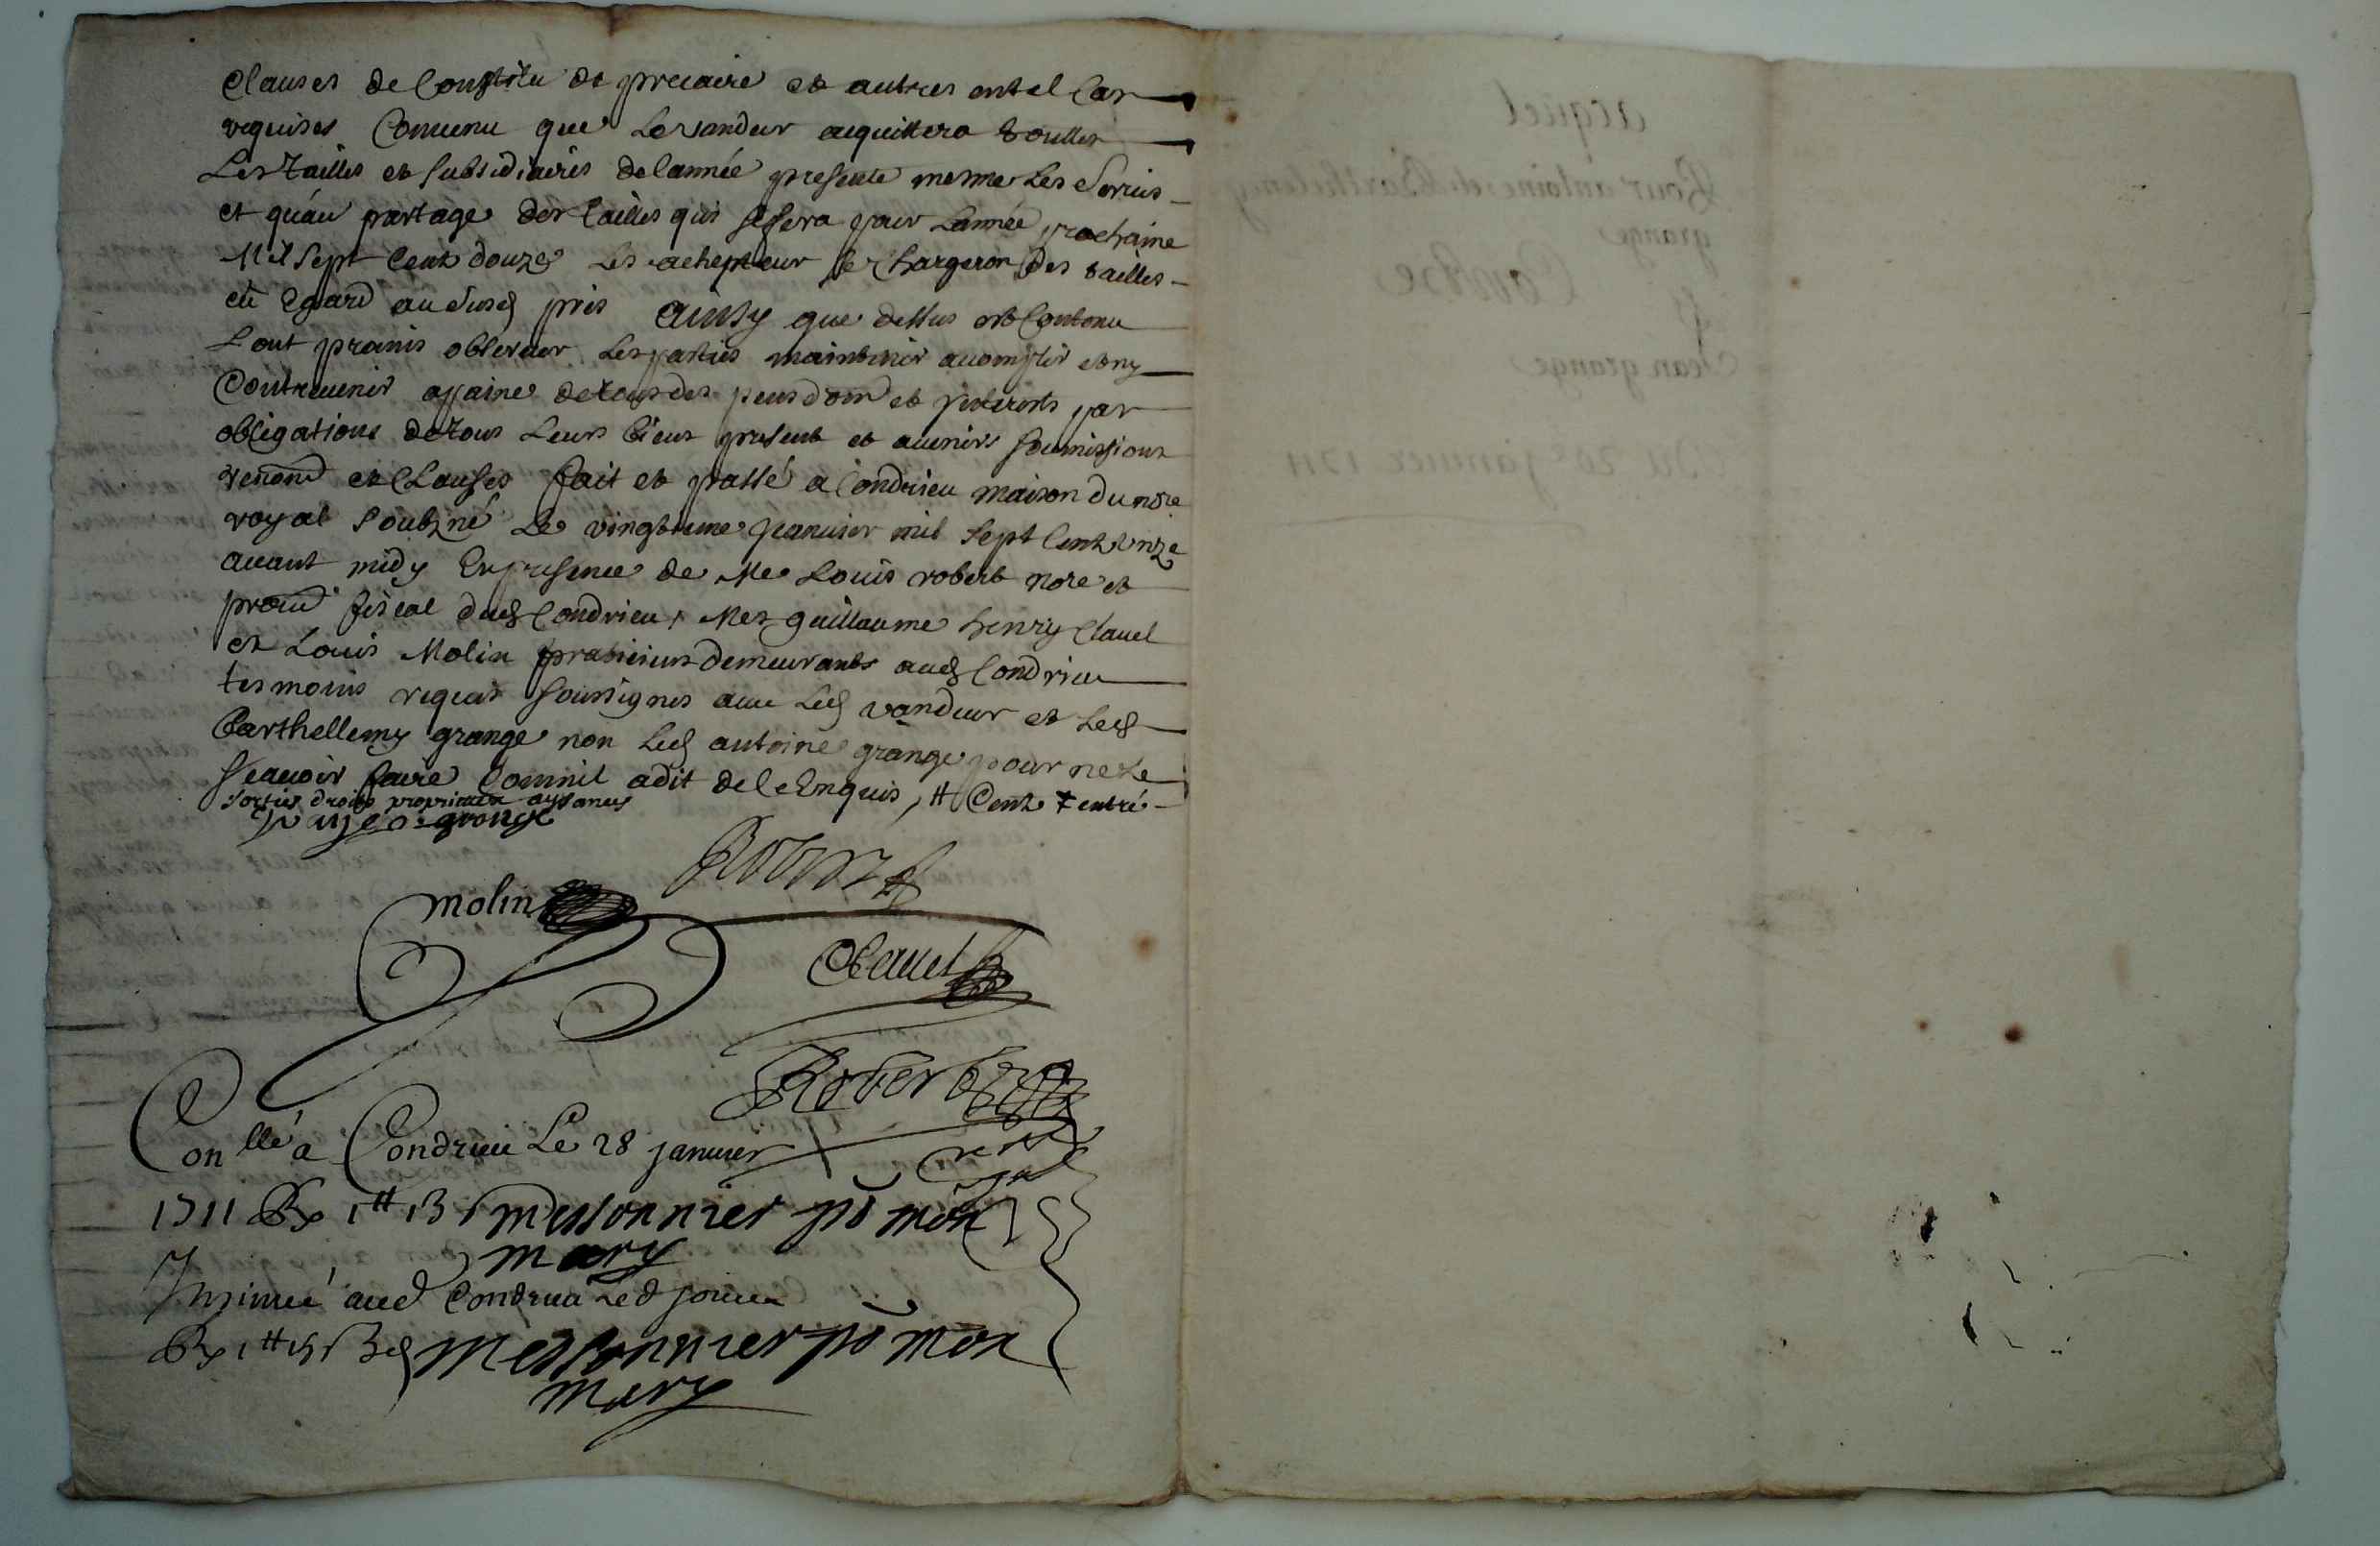 Clauses de Constitu de precaire et autres entel Cas
requises Conuenu que Le vandeur acquittera touttes
Les Tailles et subsidiaires de lannée presente mesme Les Seruis
et quau partage des tailles qui se fera pour Lannée prochaine
Mil sept Cent douze Les achepteur se Chargeron des tailles
eû Egard au susd prix ainsy que dessus est Contenu
L'ont promis obseruer Les parties maintenir accomplir et ny
Contreuenir a paine de tous des pens dom et interests par
obligations de tous Leurs biens present et auenirs soumissions
renond et Clauses fait et passé a Condrieu maison du nore
royal soubzné Le vingtieme januier mil sept Cent unze
auant midy En presence de Me Louis robert nore et
procu fiscal dud Condrieu, Mes guillaume henry Clauel
et Louis Molin praticiens demeurants aud Condrieu
tesmoins requis soussignes auec Led vandeur et Led
Barthellemy grange non Led antoine grange pour ne Le
sçauoir faire Comme il a dit de ce Enquis, # Cent # entré
sorties droits proprietes aysances
grange
Robert
molin
Clauel
Robert
Conllé a Condrieu Le 28 januier
1711 Rx 1# 13 s messonnier
mary
Insinué aud Condrieu Led jour
Rx 1# messonnier
mary
acquet
Pour antoine et Barthelemy
grange
Contre
Sr
Jean grange
Du 20e januier 1711